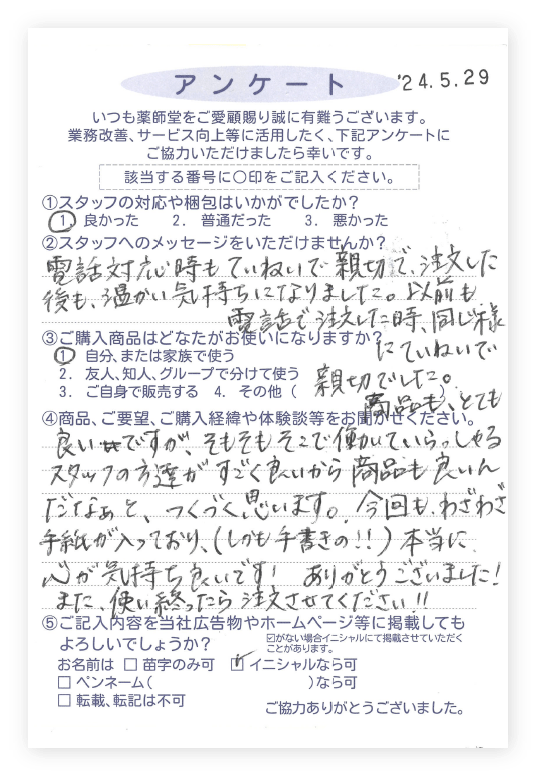 アンケート
'24.5.29
いつも薬師堂をご愛顧賜り誠に有難うございます。
業務改善、サービス向上等に活用したく、下記アンケートに
ご協力いただけましたら幸いです。
該当する番号に○印をご記入ください。
①スタッフの対応や梱包はいかがでしたか？
1. 良かった　2. 普通だった　3. 悪かった
②スタッフへのメッセージをいただけませんか？
電話対応時もていねいで親切で、注文した
後も、温かい気持ちになりました。以前も
電話で注文した時、同じ様
にていねいで
親切でした。
③ご購入商品はどなたがお使いになりますか？
1 自分、または家族で使う
2. 友人、知人、グループで分けて使う
3. ご自身で販売する　4. その他（
④商品、ご要望、ご購入経緯や体験談等をお聞かせください。
商品も、とても
良いですが、そもそもそこで働いていらっしゃる
スタッフの方達がすごく良いから商品も良いん
だなぁと、つくづく思います。今回も、わざわざ
手紙が入っており、(しかも手書きの!!) 本当に
心が気持ち良いです! ありがとうございました!
また、使い終ったら注文させてください!!
⑤ご記入内容を当社広告物やホームページ等に掲載しても
よろしいでしょうか？
☑がない場合イニシャルにて掲載させていただく
ことがあります。
お名前は □ 苗字のみ可 ☑ イニシャルなら可
□ ペンネーム(　)なら可
□ 転載、転記は不可
ご協力ありがとうございました。